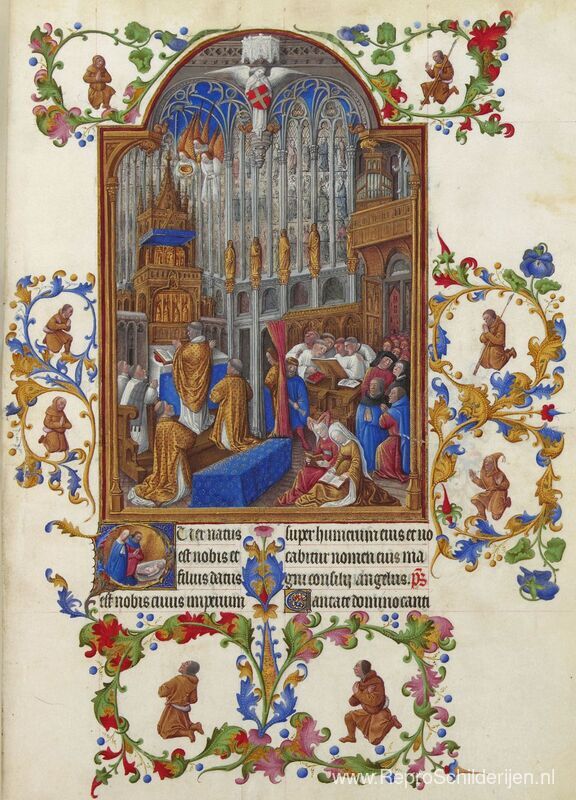 Puer natus
est nobis et
filius datus
est nobis cuius imperium
super humerum eius et vo
cabitur nomen eius ma
gni consilij angelus. ps
Cantate domino canti
www.ReproSchilderijen.nl